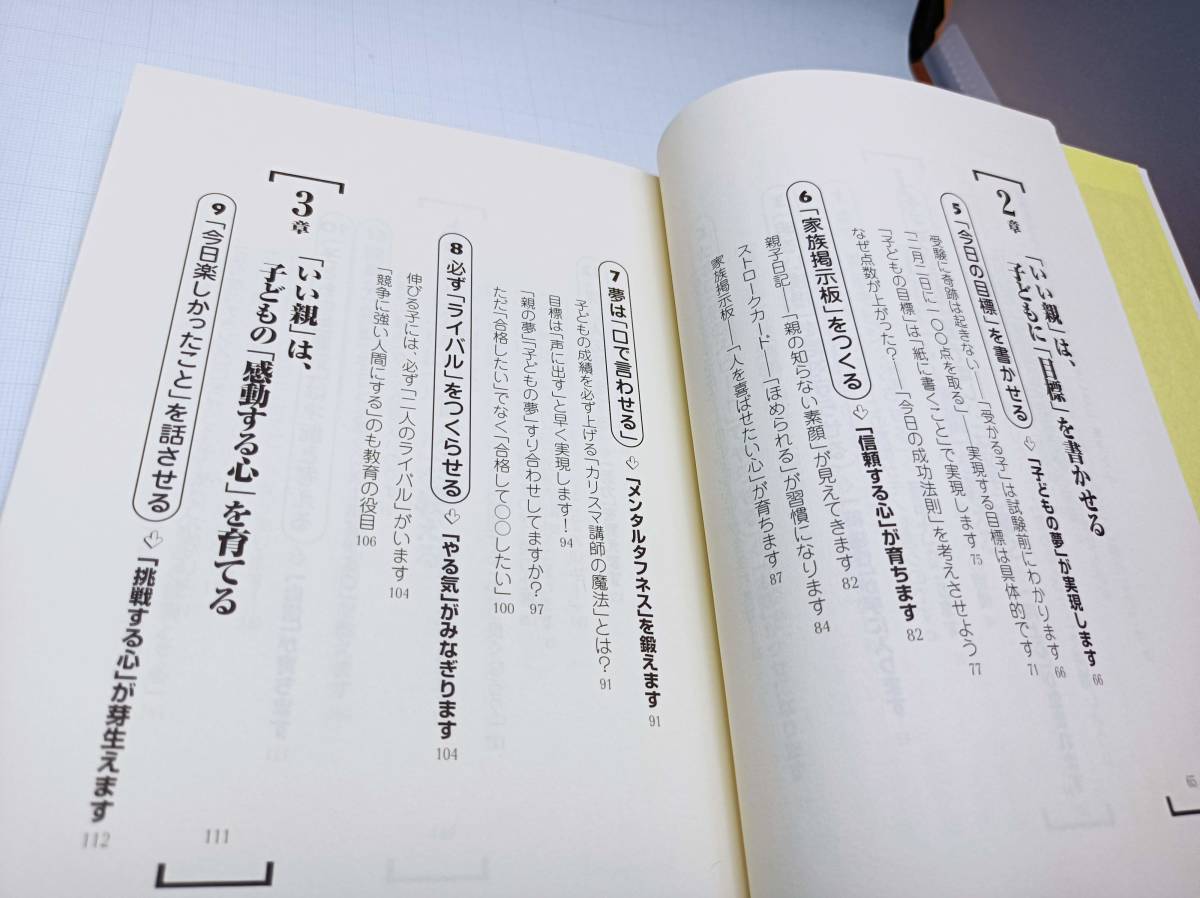 [2章 「いい親」は、
子どもに「目標」を書かせる
65]
5 「今日の目標」を書かせる ⇨ 「子どもの夢」が実現します 66
受験に奇跡は起きない――「受かる子」は試験前にわかります 66
「二月二日に一〇〇点を取る」――実現する目標は具体的です 71
「子どもの目標」は「紙に書くことで実現します 75
なぜ点数が上がった?――「今日の成功法則」を考えさせよう 77
6 「家族掲示板」をつくる ⇨ 「信頼する心」が育ちます 82
親子日記――「親の知らない素顔」が見えてきます 82
ストロークカード――「ほめられる」が習慣になります 84
家族掲示板――「人を喜ばせたい心」が育ちます 87
7 夢は「口で言わせる」 ⇨ 「メンタルタフネス」を鍛えます 91
子どもの成績を必ず上げる「カリスマ講師の魔法」とは? 91
目標は「声に出す」と早く実現します! 94
「親の夢」「子どもの夢」すり合わせしてますか? 97
ただ「合格したい」でなく「合格して〇〇したい」 100
8 必ず「ライバル」をつくらせる ⇨ 「やる気」がみなぎります 104
伸びる子には、必ず「二人のライバル」がいます 104
「競争に強い人間にする」のも教育の役目 106
[3章 「いい親」は、
子どもの「感動する心」を育てる
111]
9 「今日楽しかったこと」を話させる ⇨ 「挑戦する心」が芽生えます 112